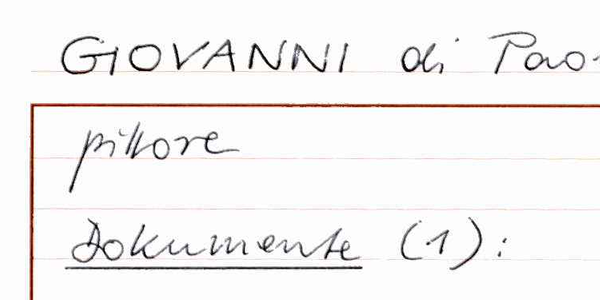 GIOVANNI di Pao
pittore
Dokumente (1):